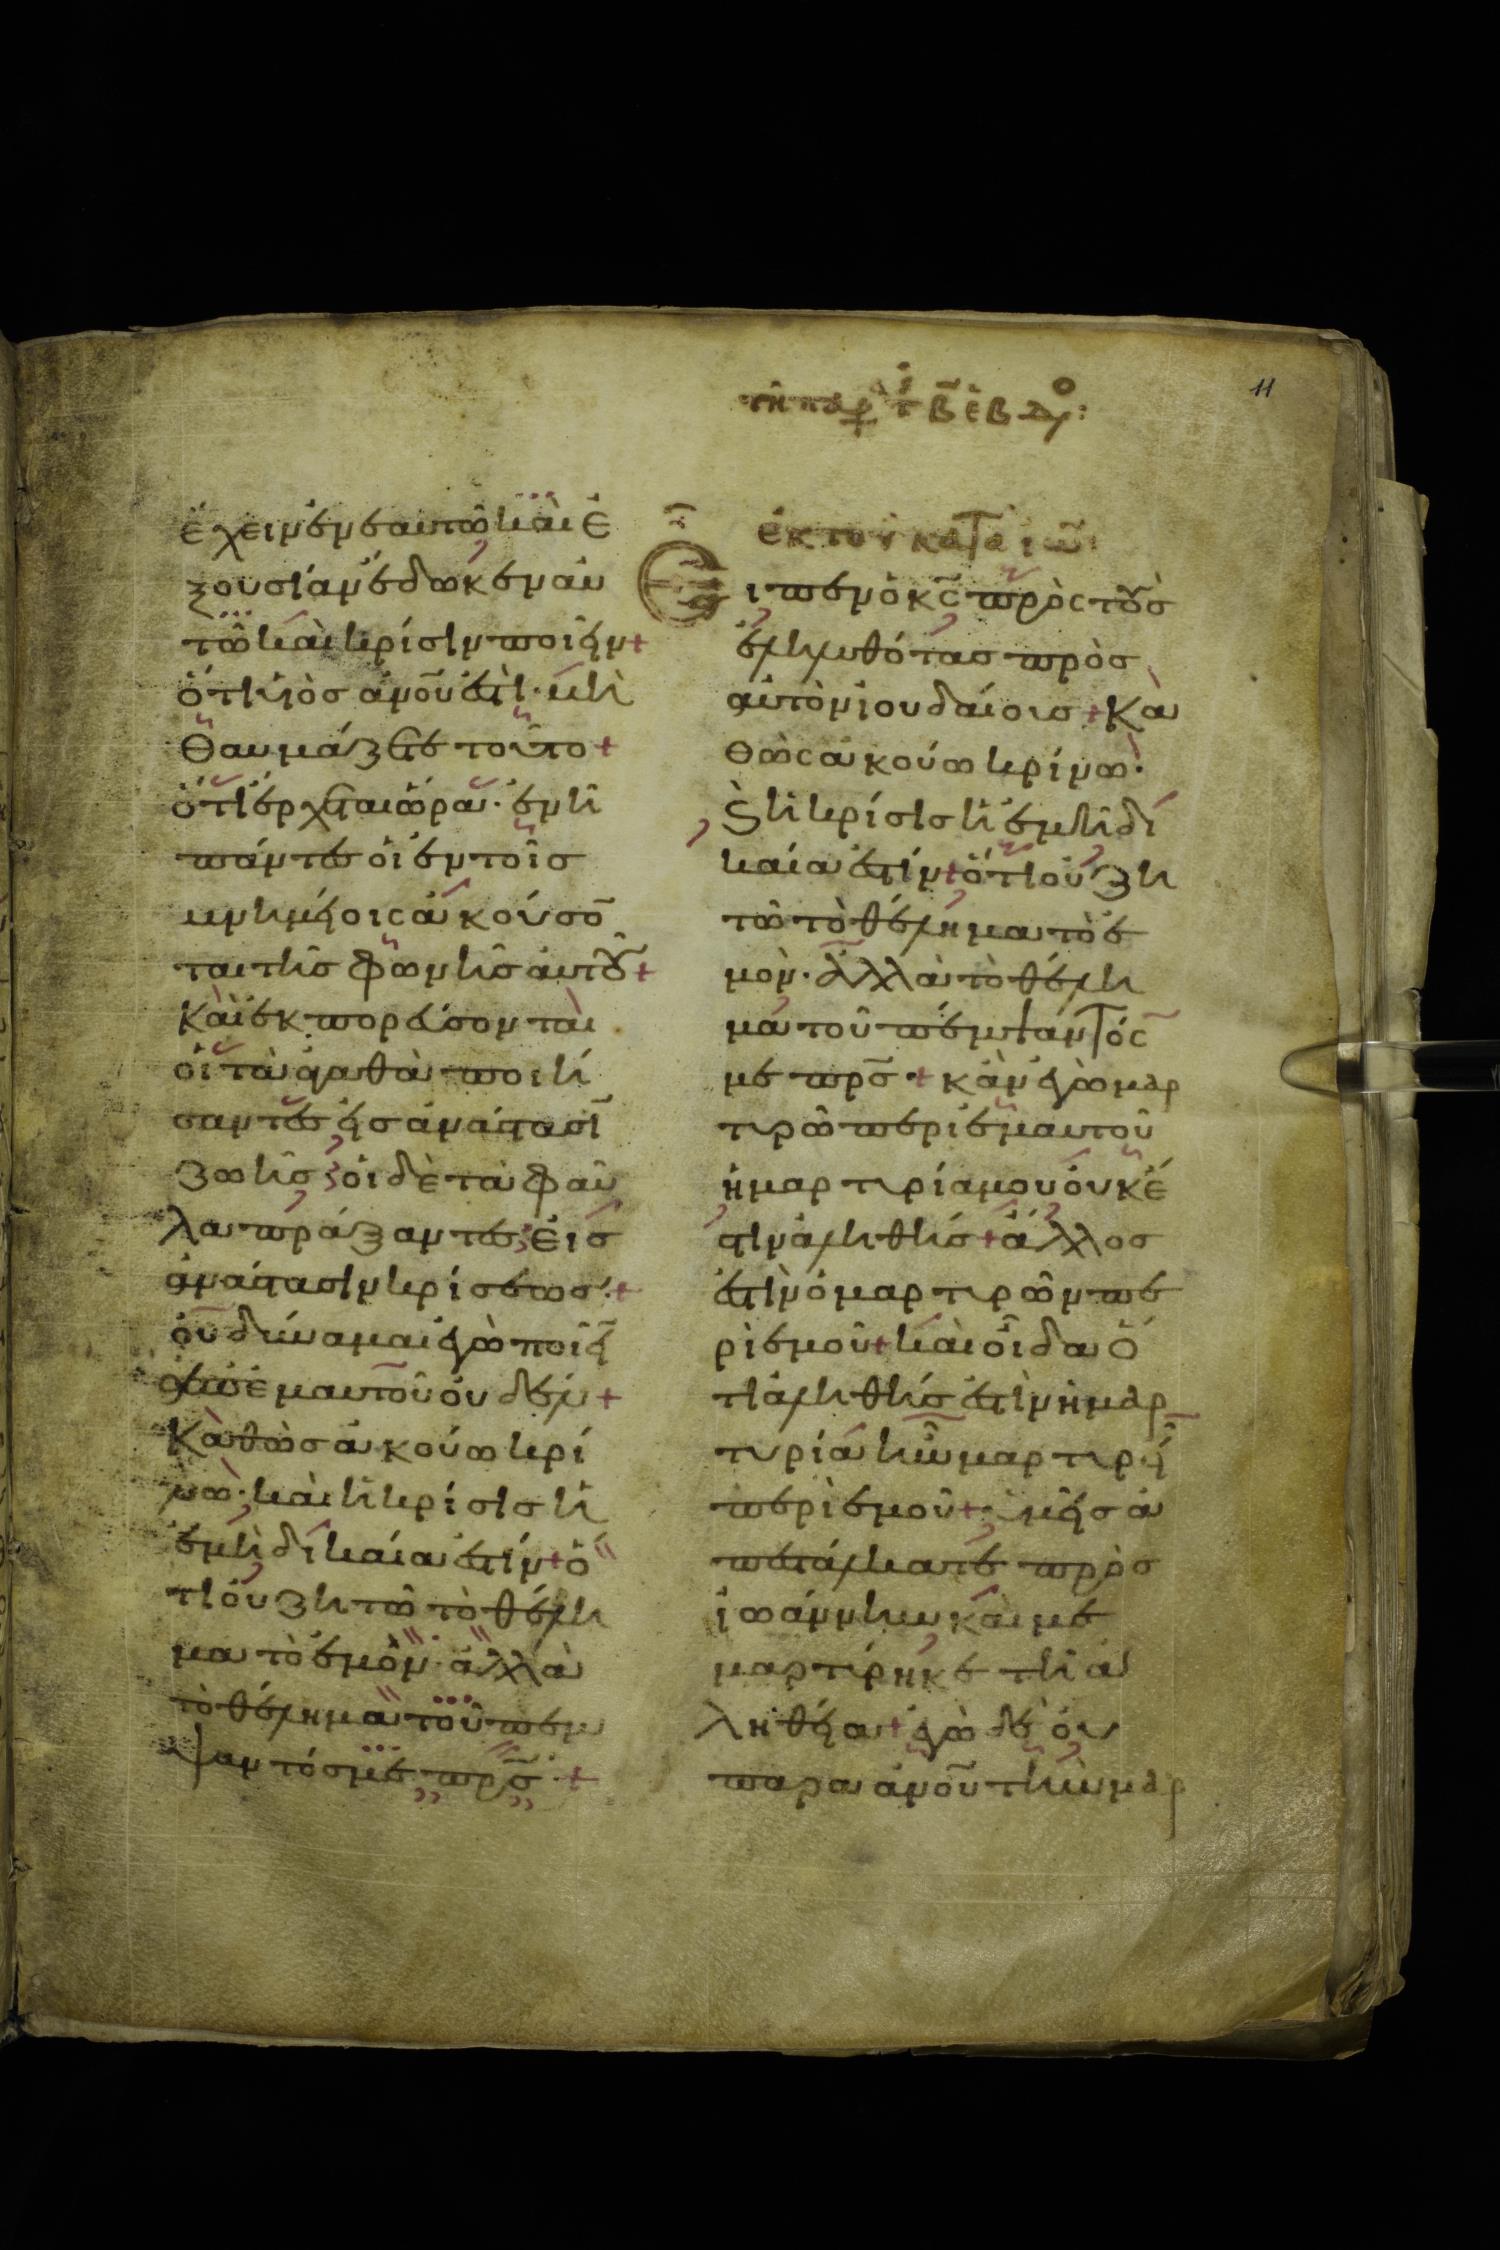 11
τῆ παρ τ β ε βδο:
ἔχειν ἐν ἑαυτῶ καὶ ἐ
ξουσίαν ἔδωκεν αὐ
τῶ καὶ κρίσιν ποιεῖν +
ὅτι υἱὸσ ἀνου ἐστὶ· μὴ
θαυμάζετε τοῦτο +
ὅτι ἔρχεται ὥρα· ἐν ἧ
πάντεσ οἱ ἐν τοῖσ
μνημείοις ἀκούσο
ται τῆσ φωνῆσ αὐτοῦ +
Καὶ ἐκπορεύσονται
οἱ τὰ ἀγαθὰ ποιή
σαντεσ εἰσ ἀνάστασι
ζωῆσ οἱ δὲ τὰ φαῦ
λα πράξαντεσ εἰσ
ἀνάστασιν κρίσεωσ· +
οὐ δύναμαι ἐγὼ ποιεῖ
ἀπ' ἐμαυτοῦ οὐδέν +
Καθὼσ ἀκούω κρί
νω· καὶ ἡ κρίσισ ἡ
ἐμὴ δικαία ἐστίν + ὅ
τι οὐ ζητῶ τὸ θέλη
μα τὸ ἐμὸν· ἀλλὰ
τὸ θέλημα τοῦ πέμ
ψαντόσ με πρσ +
ἐκ του κατα ιω
Εἶπεν ὁ κς πρὸς τοὺσ
ἐληλυθότασ πρὸσ
αὐτὸν ἰουδαίοισ + Κα
θὼς ἀκούω κρίνω·
Ϗ ἡ κρίσισ ἡ ἐμὴ δι
καία ἐστίν + ὅτι οὐ ζη
τῶ τὸ θέλημα τὸ ἐ
μὸν· ἀλλὰ τὸ θέλη
μα τοῦ πέμψαντός
με πρσ + κἂν ἐγὼ μαρ
τυρῶ περὶ ἐμαυτοῦ
ἡ μαρτυρία μου οὐκ ἔ
στιν ἀληθήσ + ἄλλοσ
ἐστὶν ὁ μαρτυρῶν πε
ρὶ ἐμοῦ + καὶ οἶδα ὅ
τι ἀληθήσ ἐστὶν ἡ μαρ
τυρία ἣν μαρτυρεῖ
περὶ ἐμοῦ + ὑμεῖσ ἀ
πεστάλκατε πρὸσ
ἰωάννην καὶ με
μαρτύρηκε τῆ ἀ
ληθεία + ἐγὼ δὲ οὐ
παρα ἀνου τὴν μαρ